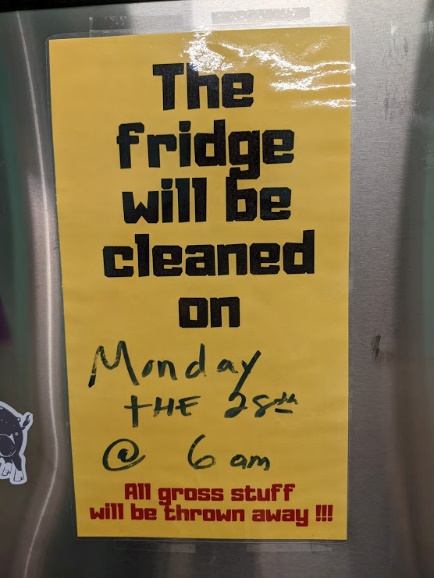 The
fridge
will be
cleaned
on
Monday
THE 28th
@ 6 am
All gross stuff
will be thrown away !!!